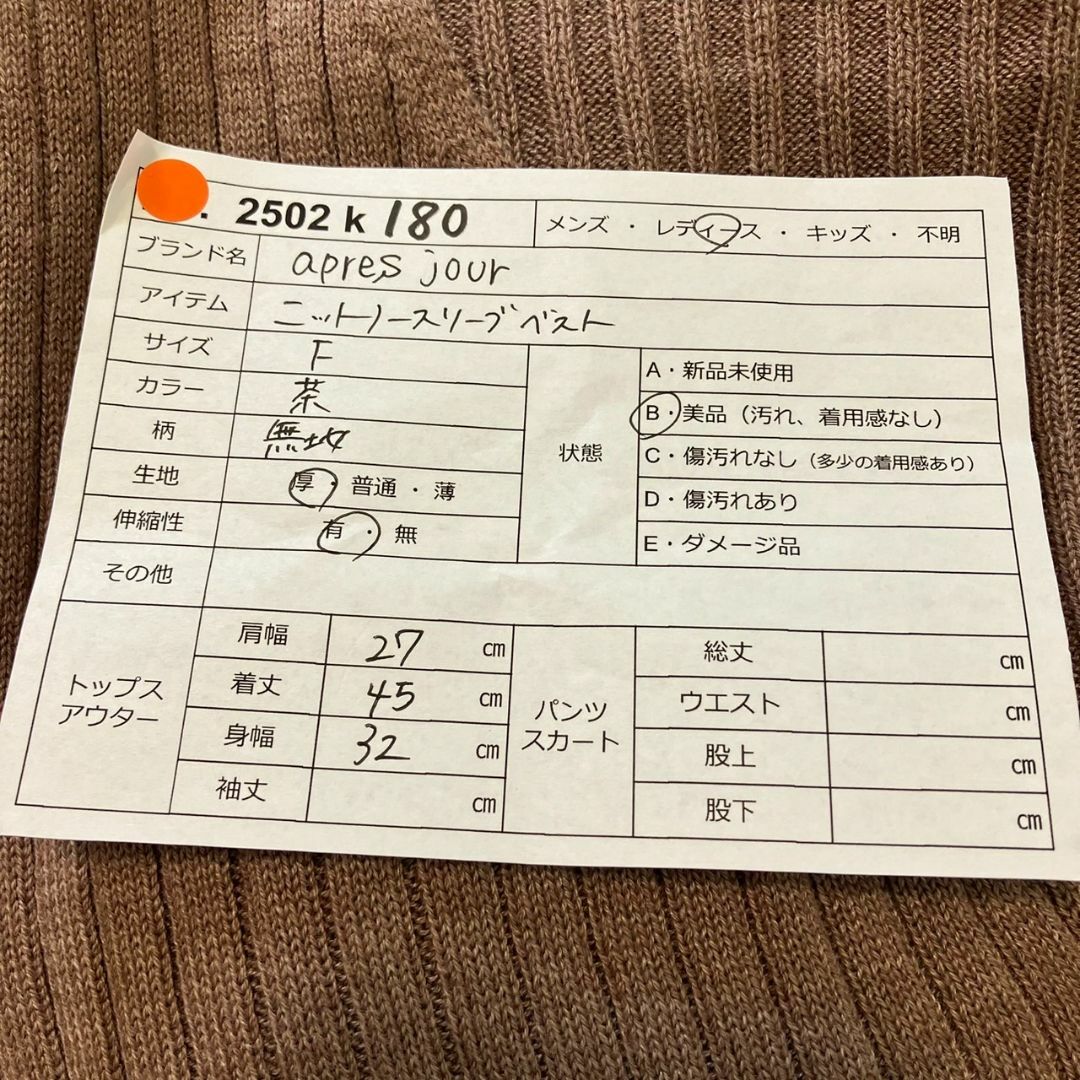 . 2502 k 180 メンズ ・ レディース ・ キッズ ・ 不明
ブランド名 apres jour
アイテム ニットノースリーブベスト
サイズ F
カラー 茶
柄 無地
生地 厚・普通・薄
伸縮性 有・無
状態
A・新品未使用
B・美品（汚れ、着用感なし）
C・傷汚れなし（多少の着用感あり）
D・傷汚れあり
E・ダメージ品
その他
トップス
アウター
肩幅 27 cm
着丈 45 cm
身幅 32 cm
袖丈 cm
パンツ
スカート
総丈 cm
ウエスト cm
股上 cm
股下 cm